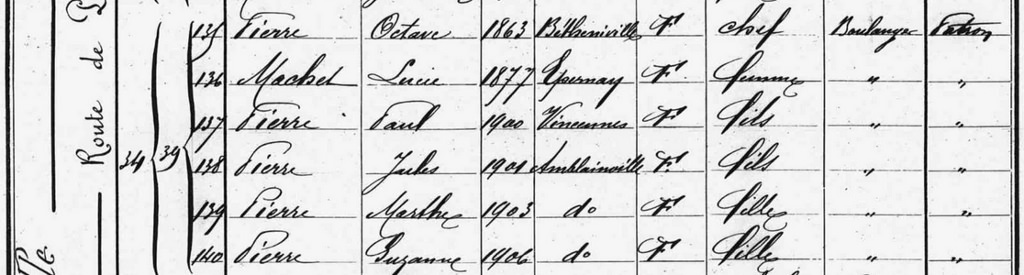 Route de
34 39
135 Pierre Octave 1863 Bétheniville Fs chef Boulanger Patron
136 Machet Lucie 1877 Epernay Fs femme " "
137 Pierre Paul 1900 Vincennes Fs fils " "
138 Pierre Jules 1901 Amblainville Fs fils " "
139 Pierre Marthe 1903 do Fs fille " "
140 Pierre Suzanne 1906 do Fs fille " "